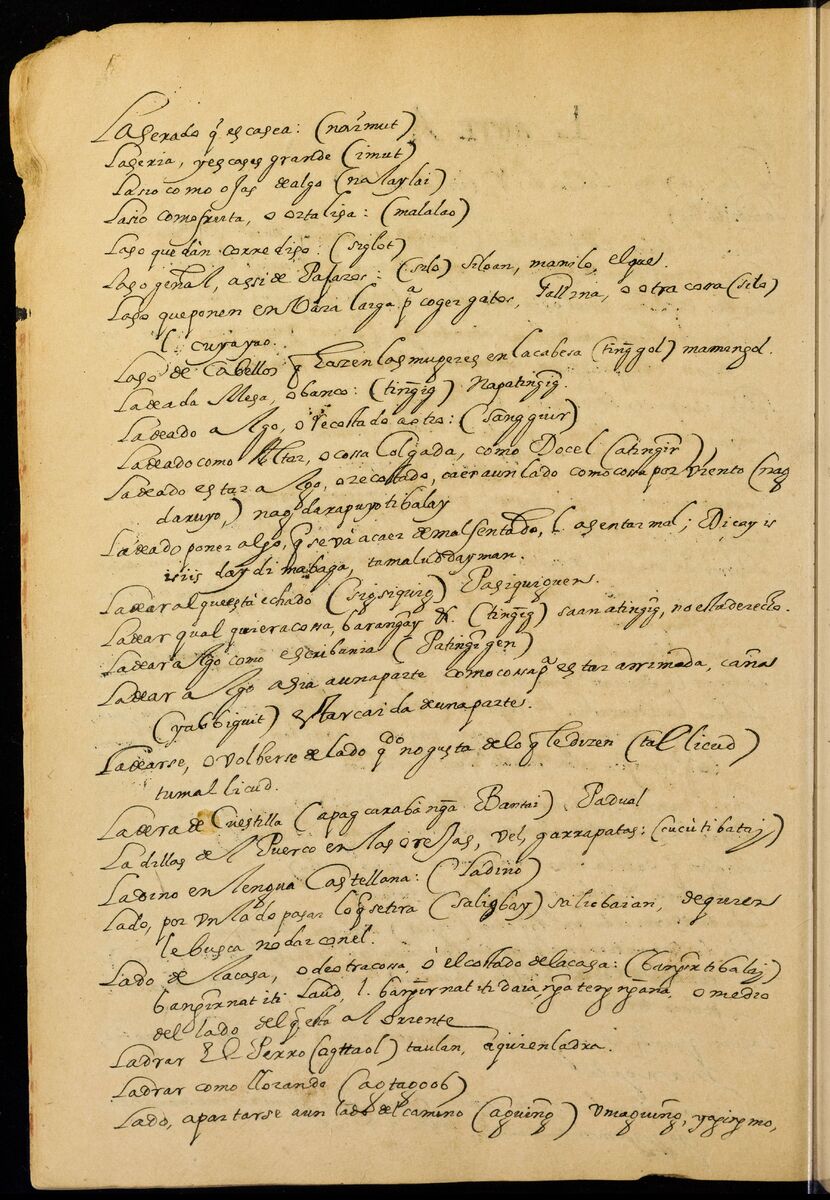 Laserado q̃ es casca: (naimut)
Laseria, y escases grande (imut)
Lasio como ojas de algo (nalaylai)
Lasio como fruta, o ortalisa: (malalao)
Laso que dàn corrediso: (siglot)
Laso gen̄al, assi de Pajaros: (silo) siloan, manilo, el que.
Laso que ponen en Vara larga p̃ coger gatos, Gallina, o otra cosa (silo)
l. cuyayao.
Laso de Cabellos q̃ hazen las mugeres en la cabesa (tinḡgol) mamengol.
Ladeada Mesa, o banco: (tinḡgig) Napatingig.
Ladeado a Algo, o recostado a otro: (sangguir)
Ladeado como Altar, o cossa Colgada, como Docel (atingir)
Ladeado estar a Algo, o recostado, caer aun lado como cossa por Viento (nag
daruyo,) nag darapuyo ti balay
Ladeado poner algo, q̃ se và a caer de mal sentado, l. asentar mal; Dicay is
isiis day di mabaga, tamaluddayman.
Ladear al que està echado (sigsiguig) Pasiquiguen.
Ladear qual quiera cossa, barangay &. (tingig) saan atingig, no esta derecho.
Ladear a Algo como escribania (Patingigen)
Ladear a Algo asia a una parte como cossa p̃ estar arrimada, caña
(yabbiguit) estar caida de una parte.
Ladearse, o volberse de lado q̃do no gusta de lo q̃ le dizen (tallicud)
tumallicud.
Ladera de Cuestilla (apagcarabanḡa Bantai) Padual
Ladillas del Puerco en las orejas, vel, garrapatas: (cucùtibatag)
Ladino en lengua Castellana: (ladino)
Lado, por un lado pasar lo q̃ se tira (saligbay) saliobaian, de quien
le busca no dar con el.
Lado de la casa, o de otra cossa, ò el costado de la casa: (banḡir ti balay)
banḡir nat iti Laud, l. banḡir nat iti daia, nḡa tenḡnḡana o medio
del lado del q̃ esta al oriente
Ladrar El Perro (agttaol) taulan, a quien ladra.
Ladrar como llorando (agtagoob)
Lado, apartarse a un lado del camino (aguinḡ) Umaguinḡ, yaginḡmo,